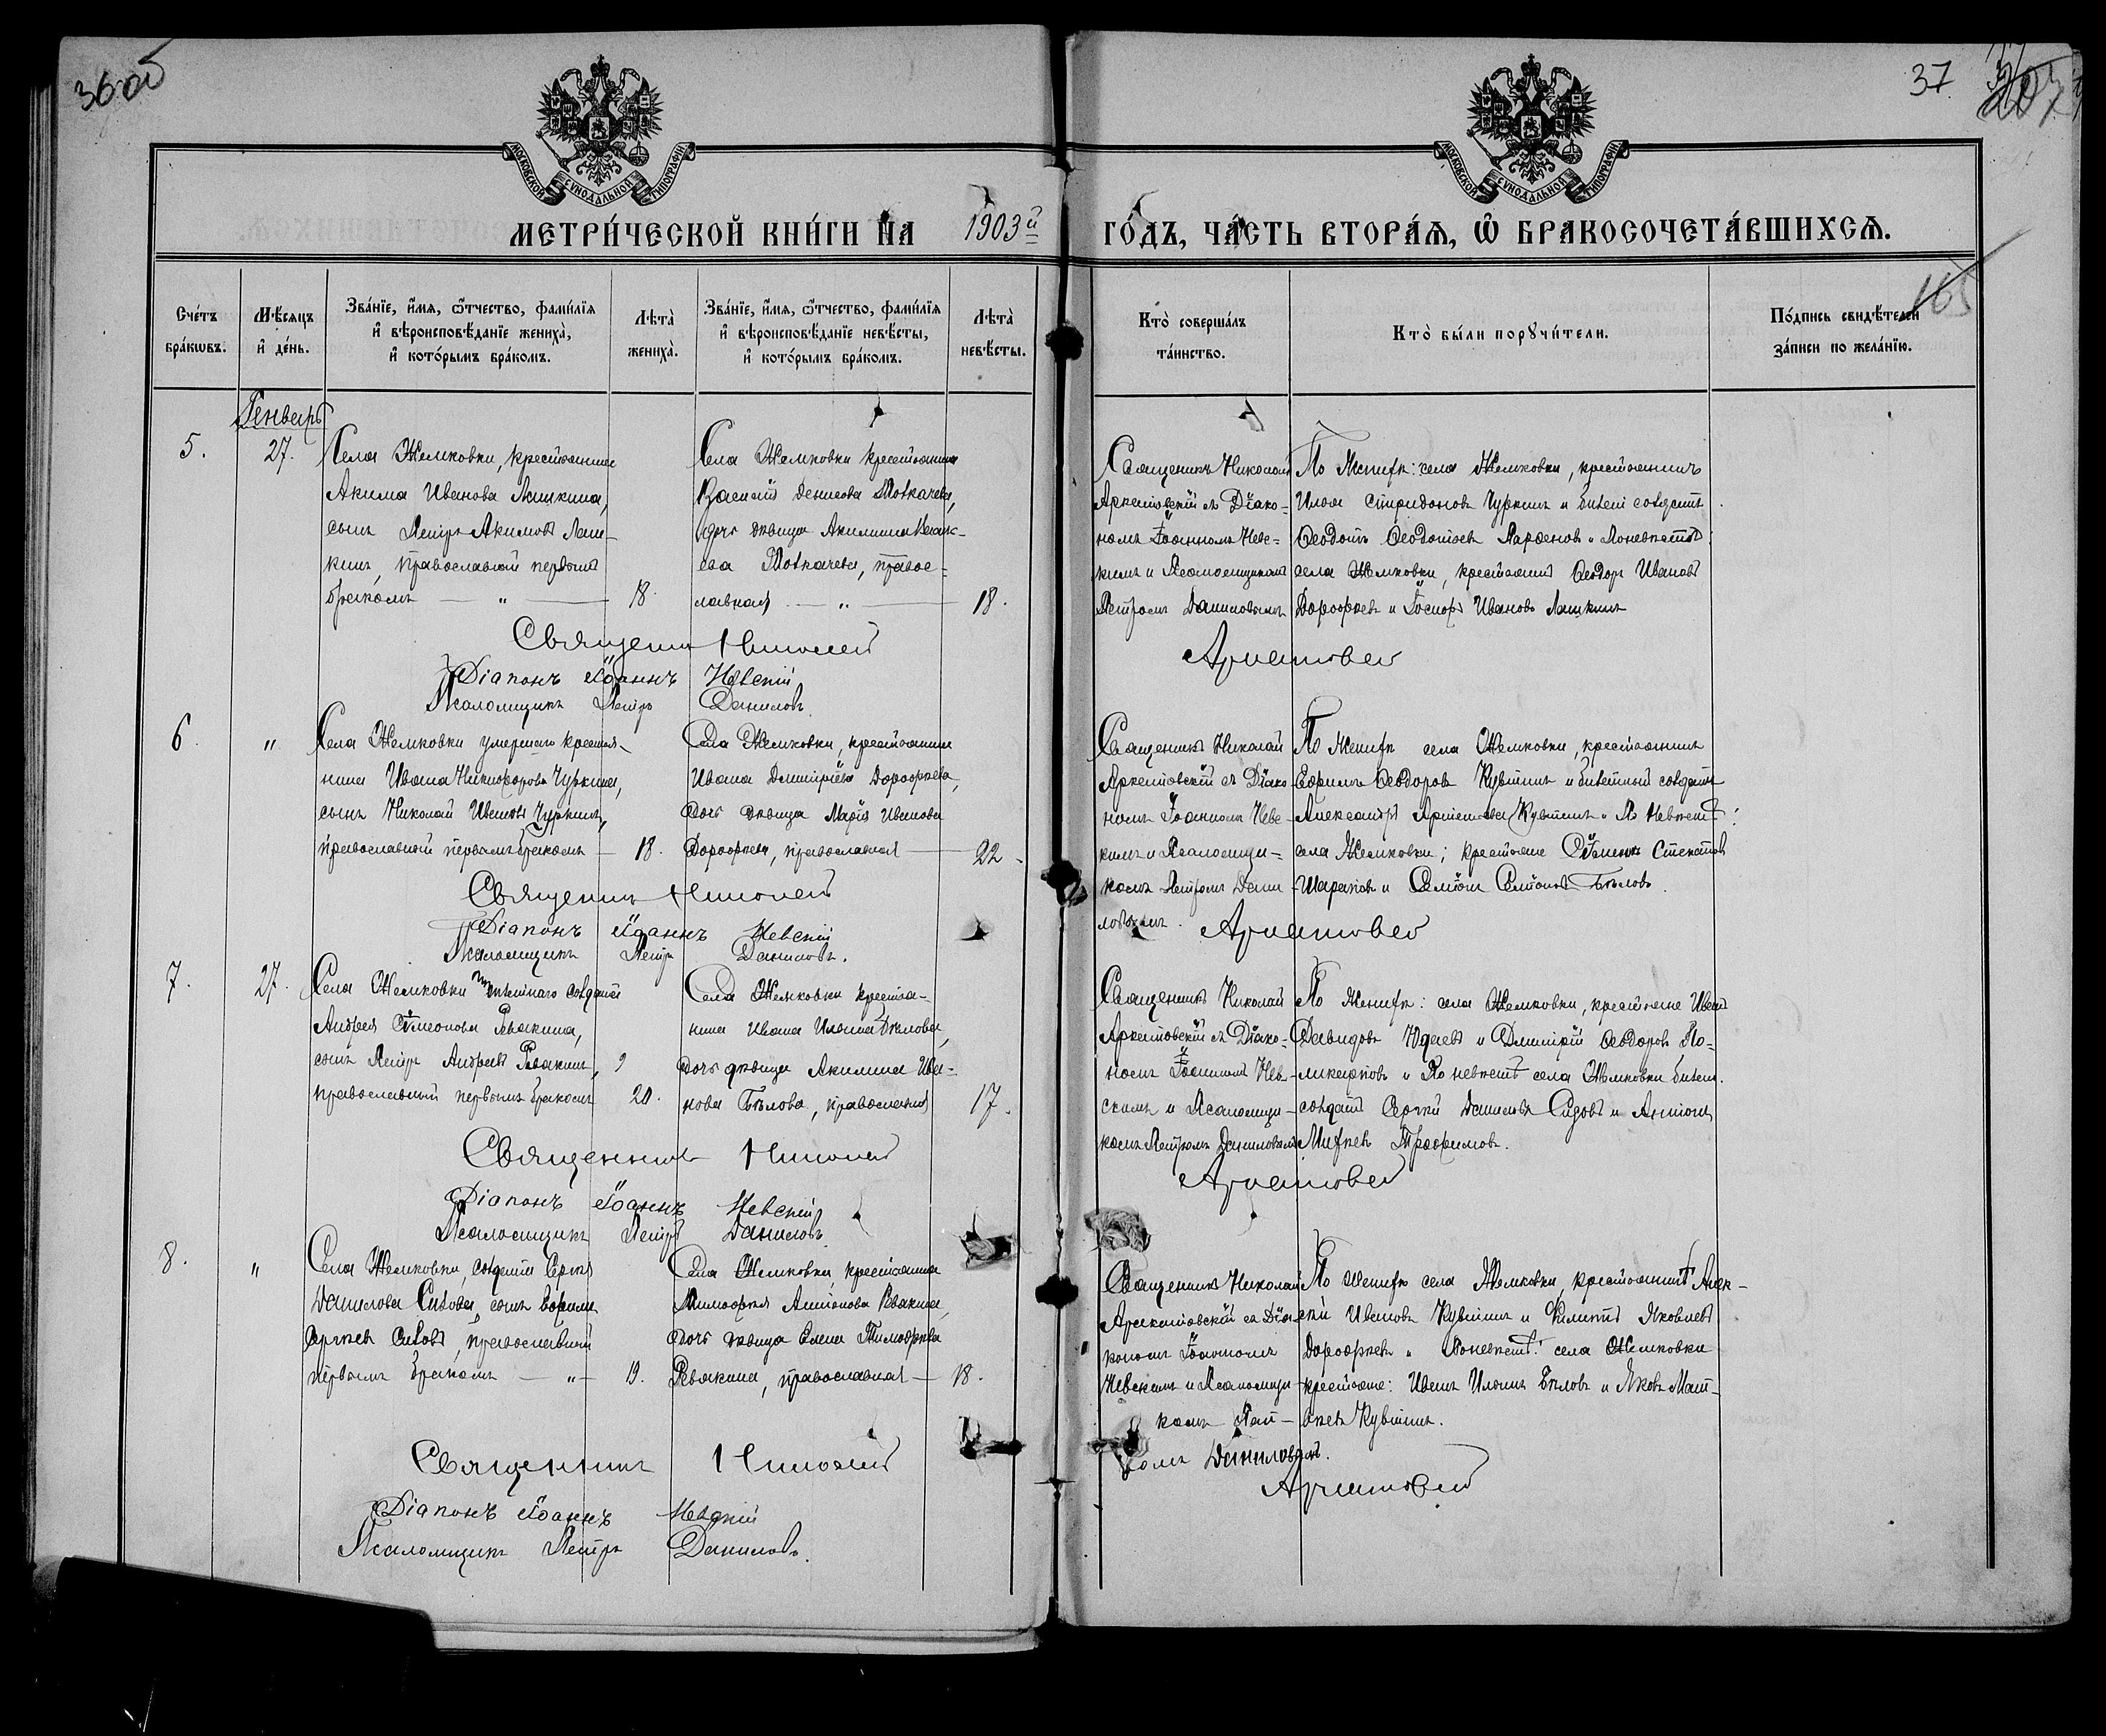 36 об
37.
МОСКОВСКОЙ СѴНОДАЛЬНОЙ ТИПОГРАФІИ
МОСКОВСКОЙ СѴНОДАЛЬНОЙ ТИПОГРАФІИ
МЕТРИ́ЧЕСКОЙ КНИ́ГИ НА 1903й ГО́ДЪ, ЧА́СТЬ ВТОРА́Ѧ, Ѽ БРАКОСОЧЕТА́ВШИХСѦ.
165
Сче́тъ бра́кѡвъ.
Мѣ́сяцъ и҆ де́нь.
Зва́нїе, и҆́мѧ, ѻ҆́тчество, фами́лїѧ и҆ вѣроисповѣ́данїе жениха̀, и҆ кото́рымъ бра́комъ.
Лѣта̀ жениха̀.
Зва́нїе, и҆́мѧ, ѻ҆́тчество, фами́лїѧ и҆ вѣроисповѣ́данїе невѣ́сты, и҆ кото́рымъ бра́комъ.
Лѣта̀ невѣ́сты.
Кто̀ соверша́лъ та́инство.
Кто̀ бы́ли порꙋчи́тели.
По́дпись свидѣ́телей за́писи по жела́нїю.
Генварь
5.
27.
Села Жемковки, крестьянина
Акима Иванова Лашкина,
сынъ Петръ Акимовъ Лаш-
кинъ, православный первымъ
бракомъ — „ —
18.
Села Жемковки крестьянина
Василія Денисова Толкачева,
дочь дѣвица Акилина Василь-
ева Толкачева, право-
славная — „ —
18.
Священникъ Николай
Аркатовскій съ Діако-
номъ Іоанномъ Невс-
кимъ и Псаломщикомъ
Петромъ Даниловымъ
По Женихѣ: села Жемковки, крестьянинъ
Илья Спиридоновъ Чуркинъ и билет. солдатъ
Ѳеодотъ Ѳеодотовъ Парѳеновъ и По невѣстѣ:
села Жемковки, крестьяне Ѳеодоръ Ивановъ
Дороѳеевъ и Іосифъ Ивановъ Лашкинъ
Священникъ Николай Аркатовскій
Діаконъ Іоаннъ Невскій
Псаломщикъ Петръ Даниловъ
6.
„
Села Жемковки умершаго крестья-
нина Ивана Никифорова Чуркина,
сынъ Николай Ивановъ Чуркинъ,
православный первымъ бракомъ —
18.
Села Жемковки, крестьянина
Ивана Димитріева Дороѳеева,
дочь дѣвица Марія Иванова
Дороѳеева, православная —
22.
Священникъ Николай
Аркатовскій съ Діако-
номъ Іоанномъ Невс-
кимъ и Псаломщи-
комъ Петромъ Дани-
ловымъ.
По Женихѣ села Жемковки, крестьянинъ
Ефимъ Ѳеодоровъ Кувшинъ и билетный солдатъ
Александръ Кувшинъ и По Невѣстѣ:
села Жемковки; крестьяне
Шараповъ и Семіонъ Семіоновъ Бѣловъ.
Священникъ Николай Аркатовскій
Діаконъ Іоаннъ Невскій
Псаломщикъ Петръ Даниловъ.
7.
27.
Села Жемковки солдата
Андрея Симеонова Рвакина,
сынъ Петръ Андреевъ Рвакинъ,
православный первымъ бракомъ
20.
Села Жемковки крестья-
нина Ивана Ильина Бѣлова,
дочь дѣвица Акилина Ива-
нова Бѣлова, православная
17.
Священникъ Николай
Аркатовскій съ Діако-
номъ Іоанномъ Нев-
скимъ и Псаломщи-
комъ Петромъ Даниловымъ
По Женихѣ: села Жемковки, крестьяне Иванъ
Давидовъ Юдаевъ и Димитрій Ѳеодоровъ По-
ликарповъ и По невѣстѣ села Жемковки билет.
солдатъ Сергій Даниловъ Сизовъ и Антонъ
Михѣевъ Трофимовъ.
Священникъ Николай Аркатовскій
Діаконъ Іоаннъ Невскій
Псаломщикъ Петръ Даниловъ
8.
„
Села Жемковки, солдата Сергія
Данилова Сизова, сынъ Ефимъ
Сергѣевъ Сизовъ, православный
первымъ бракомъ — „ —
19.
Села Жемковки крестьянина
Тимоѳея Антонова Рвакина,
дочь дѣвица Елена Тимоѳеева
Рвакина, православная —
18.
Священникъ Николай
Аркатовскій съ Діа-
кономъ Іоанномъ
Невскимъ и Псаломщи-
комъ Пет-
ромъ Даниловымъ.
По Женихѣ села Жемковки, крестьяне Алек-
сѣй Ивановъ Кувшинъ и Филиппъ Яковлевъ
Дороѳеевъ и По невѣстѣ: села Жемковки
крестьяне: Иванъ Ильинъ Бѣловъ и Яковъ Мат-
вѣевъ Кувшинъ.
Священникъ Николай Аркатовскій
Діаконъ Іоаннъ Невскій
Псаломщикъ Петръ Даниловъ.